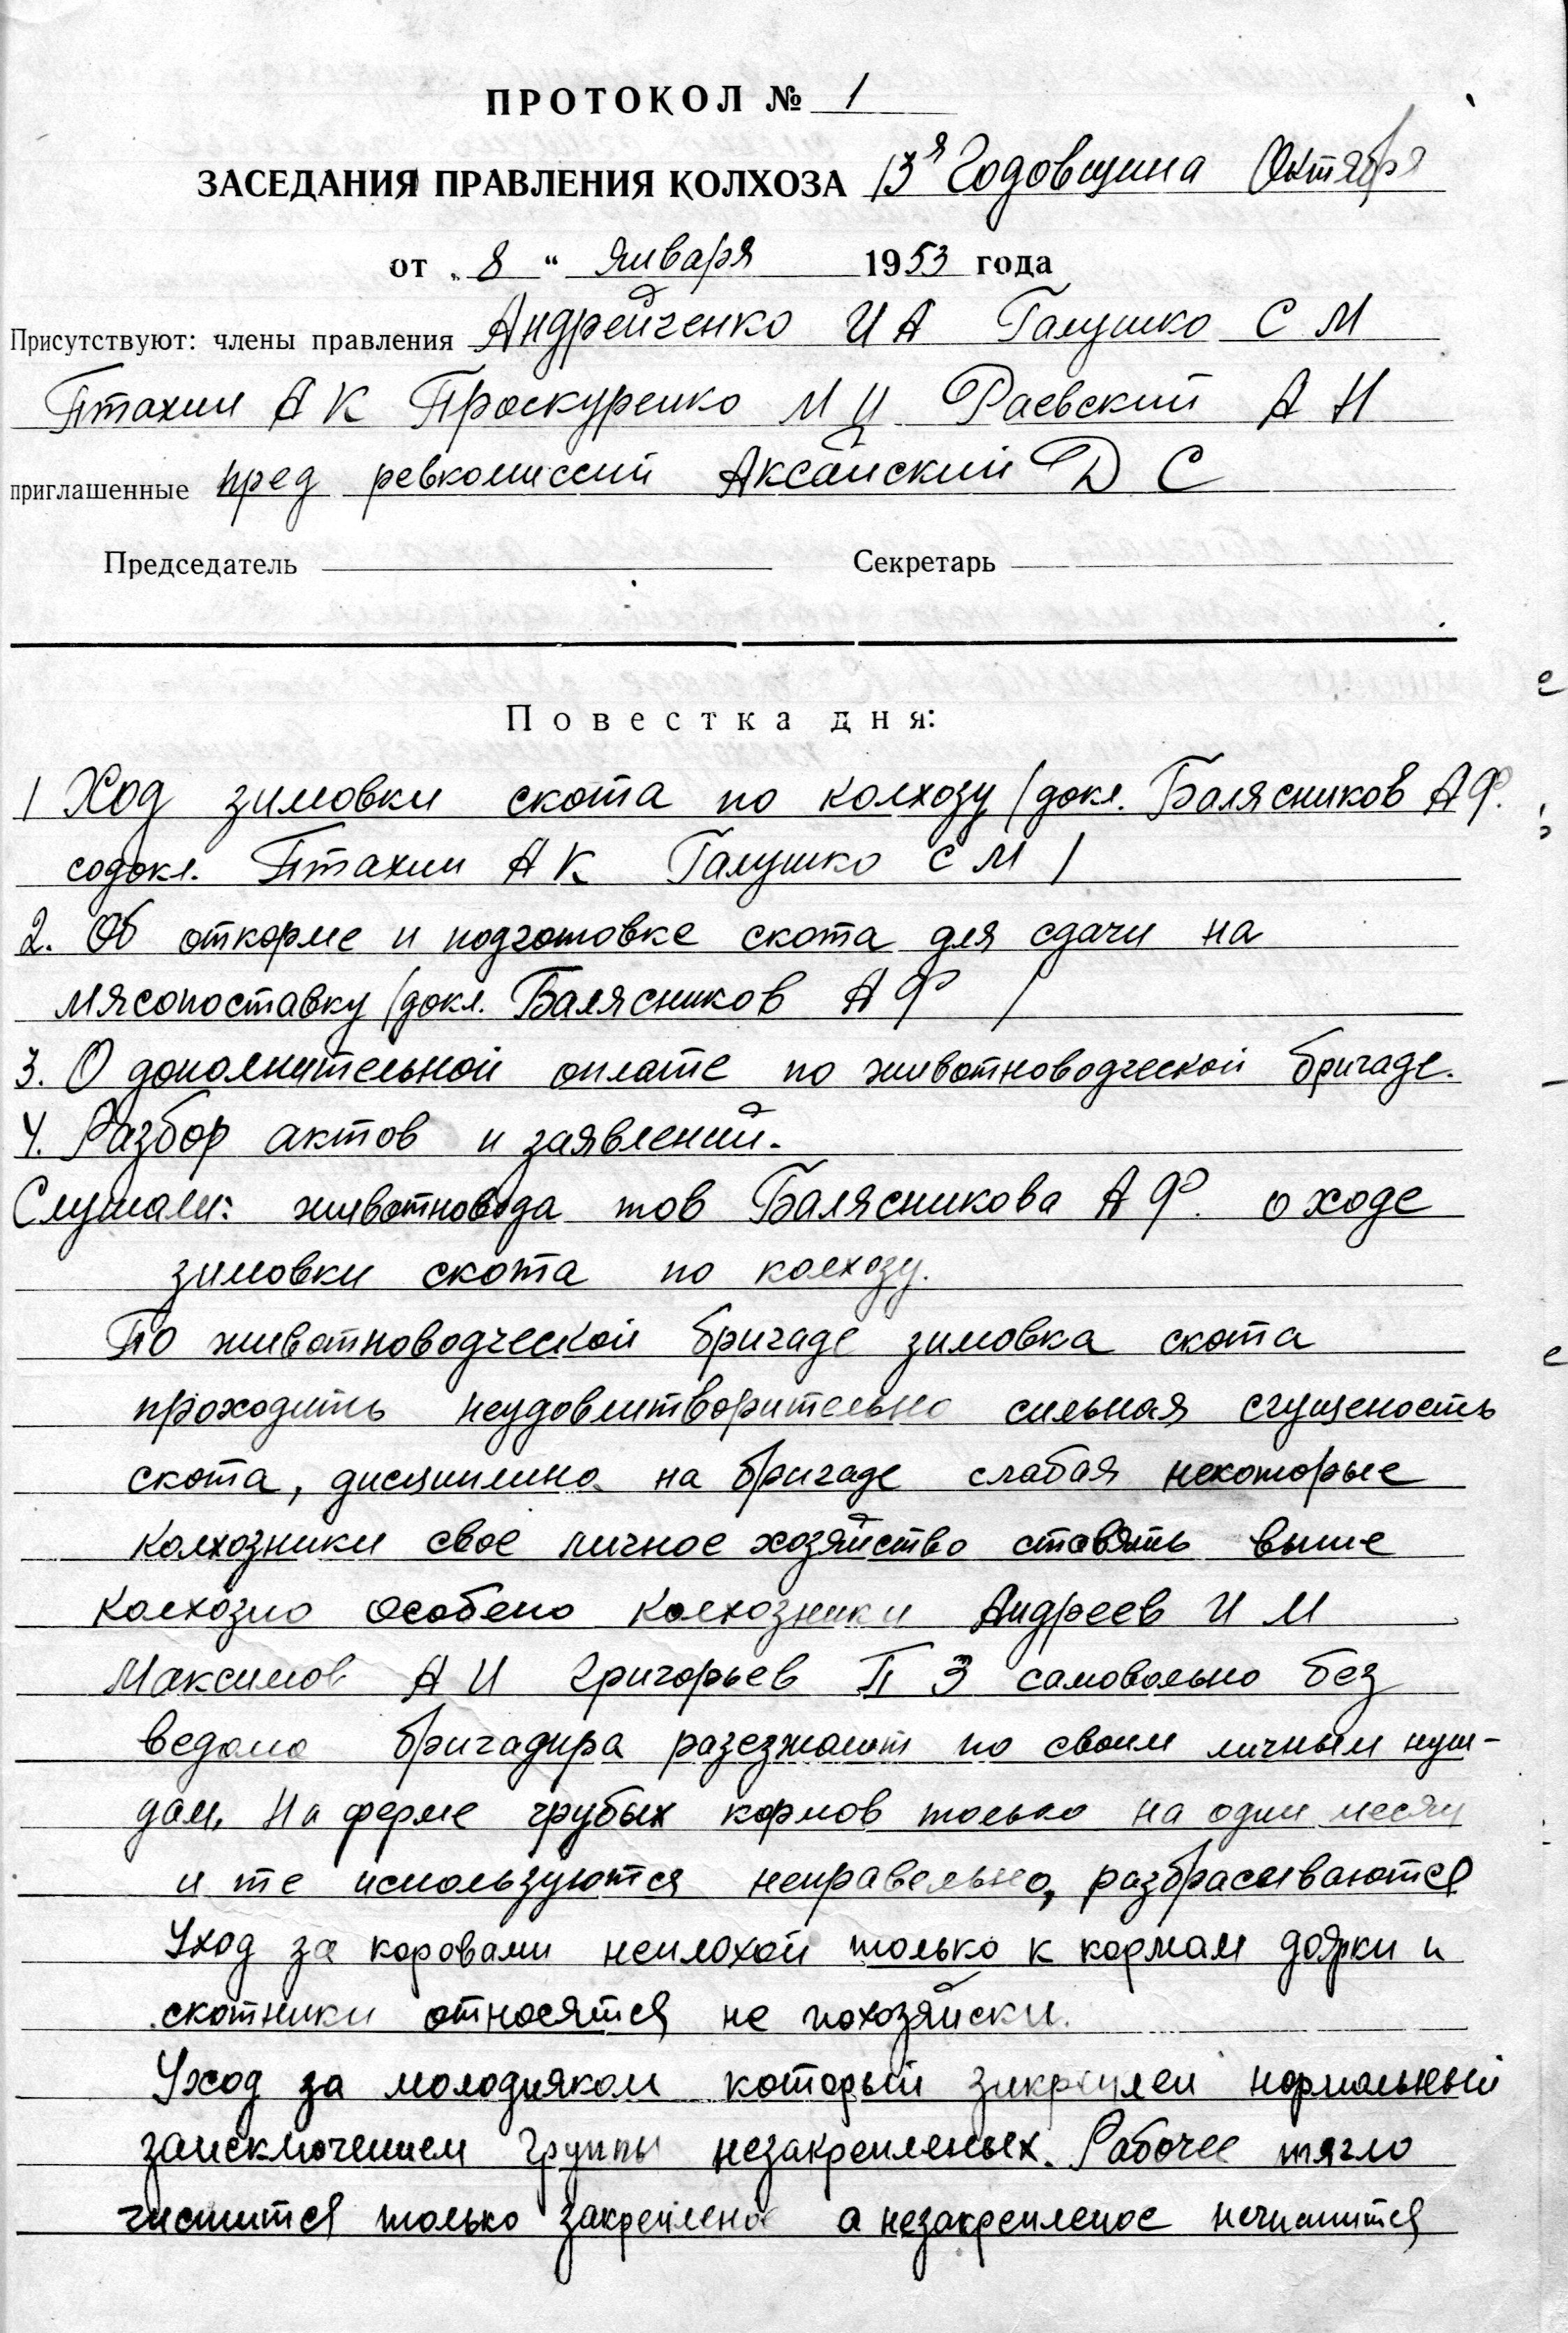 ПРОТОКОЛ № 1
ЗАСЕДАНИЯ ПРАВЛЕНИЯ КОЛХОЗА 13я Годовщина Октября
от „8“ Января 1953 года
Присутствуют: члены правления Андрейченко И А Галушко С М
Птахин А К Проскуренко М И Раевский А Н
приглашенные пред ревкомиссии Аксайский Д С
Председатель Секретарь
Повестка дня:
1 Ход зимовки скота по колхозу /докл. Балясников А Ф.
содокл. Птахин А К Галушко С М /
2. Об откорме и подготовке скота для сдачи на
мясопоставку /докл. Балясников А Ф /
3. О дополнительной оплате по животноводческой бригаде.
4. Разбор актов и заявлений.
Слушали: животновода тов Балясникова А Ф. о ходе
зимовки скота по колхозу.
По животноводческой бригаде зимовка скота
проходить неудовлитворительно сильная сгущеность
скота, дисциплина на бригаде слабая некоторые
колхозники свое личное хозяйство ставять выше
колхозно особено колхозники Андреев И М
Максимов А И Григорьев П З самовольно без
ведома бригадира разезжают по своим личным нуж-
дам, На ферме грубых кормов только на один месяц
и те используются неправельно, разбрасываются
Уход за коровами неплохой только к кормам доярки и
скотники относятся не похозяйски.
Уход за молодняком который закреплен нормальный
заисключением группы незакрепленых. Рабочее тягло
чистится только закрепленое а незакрепленое нечистится